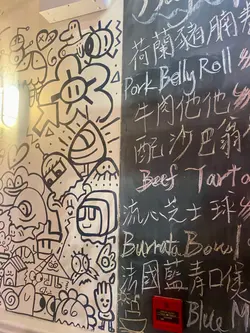 荷蘭豬腩
Pork Belly Roll
牛肉他他
配沙巴翁
Beef Tarta
流心芝士球
Burrata Bowl
法國藍青口
Blue M